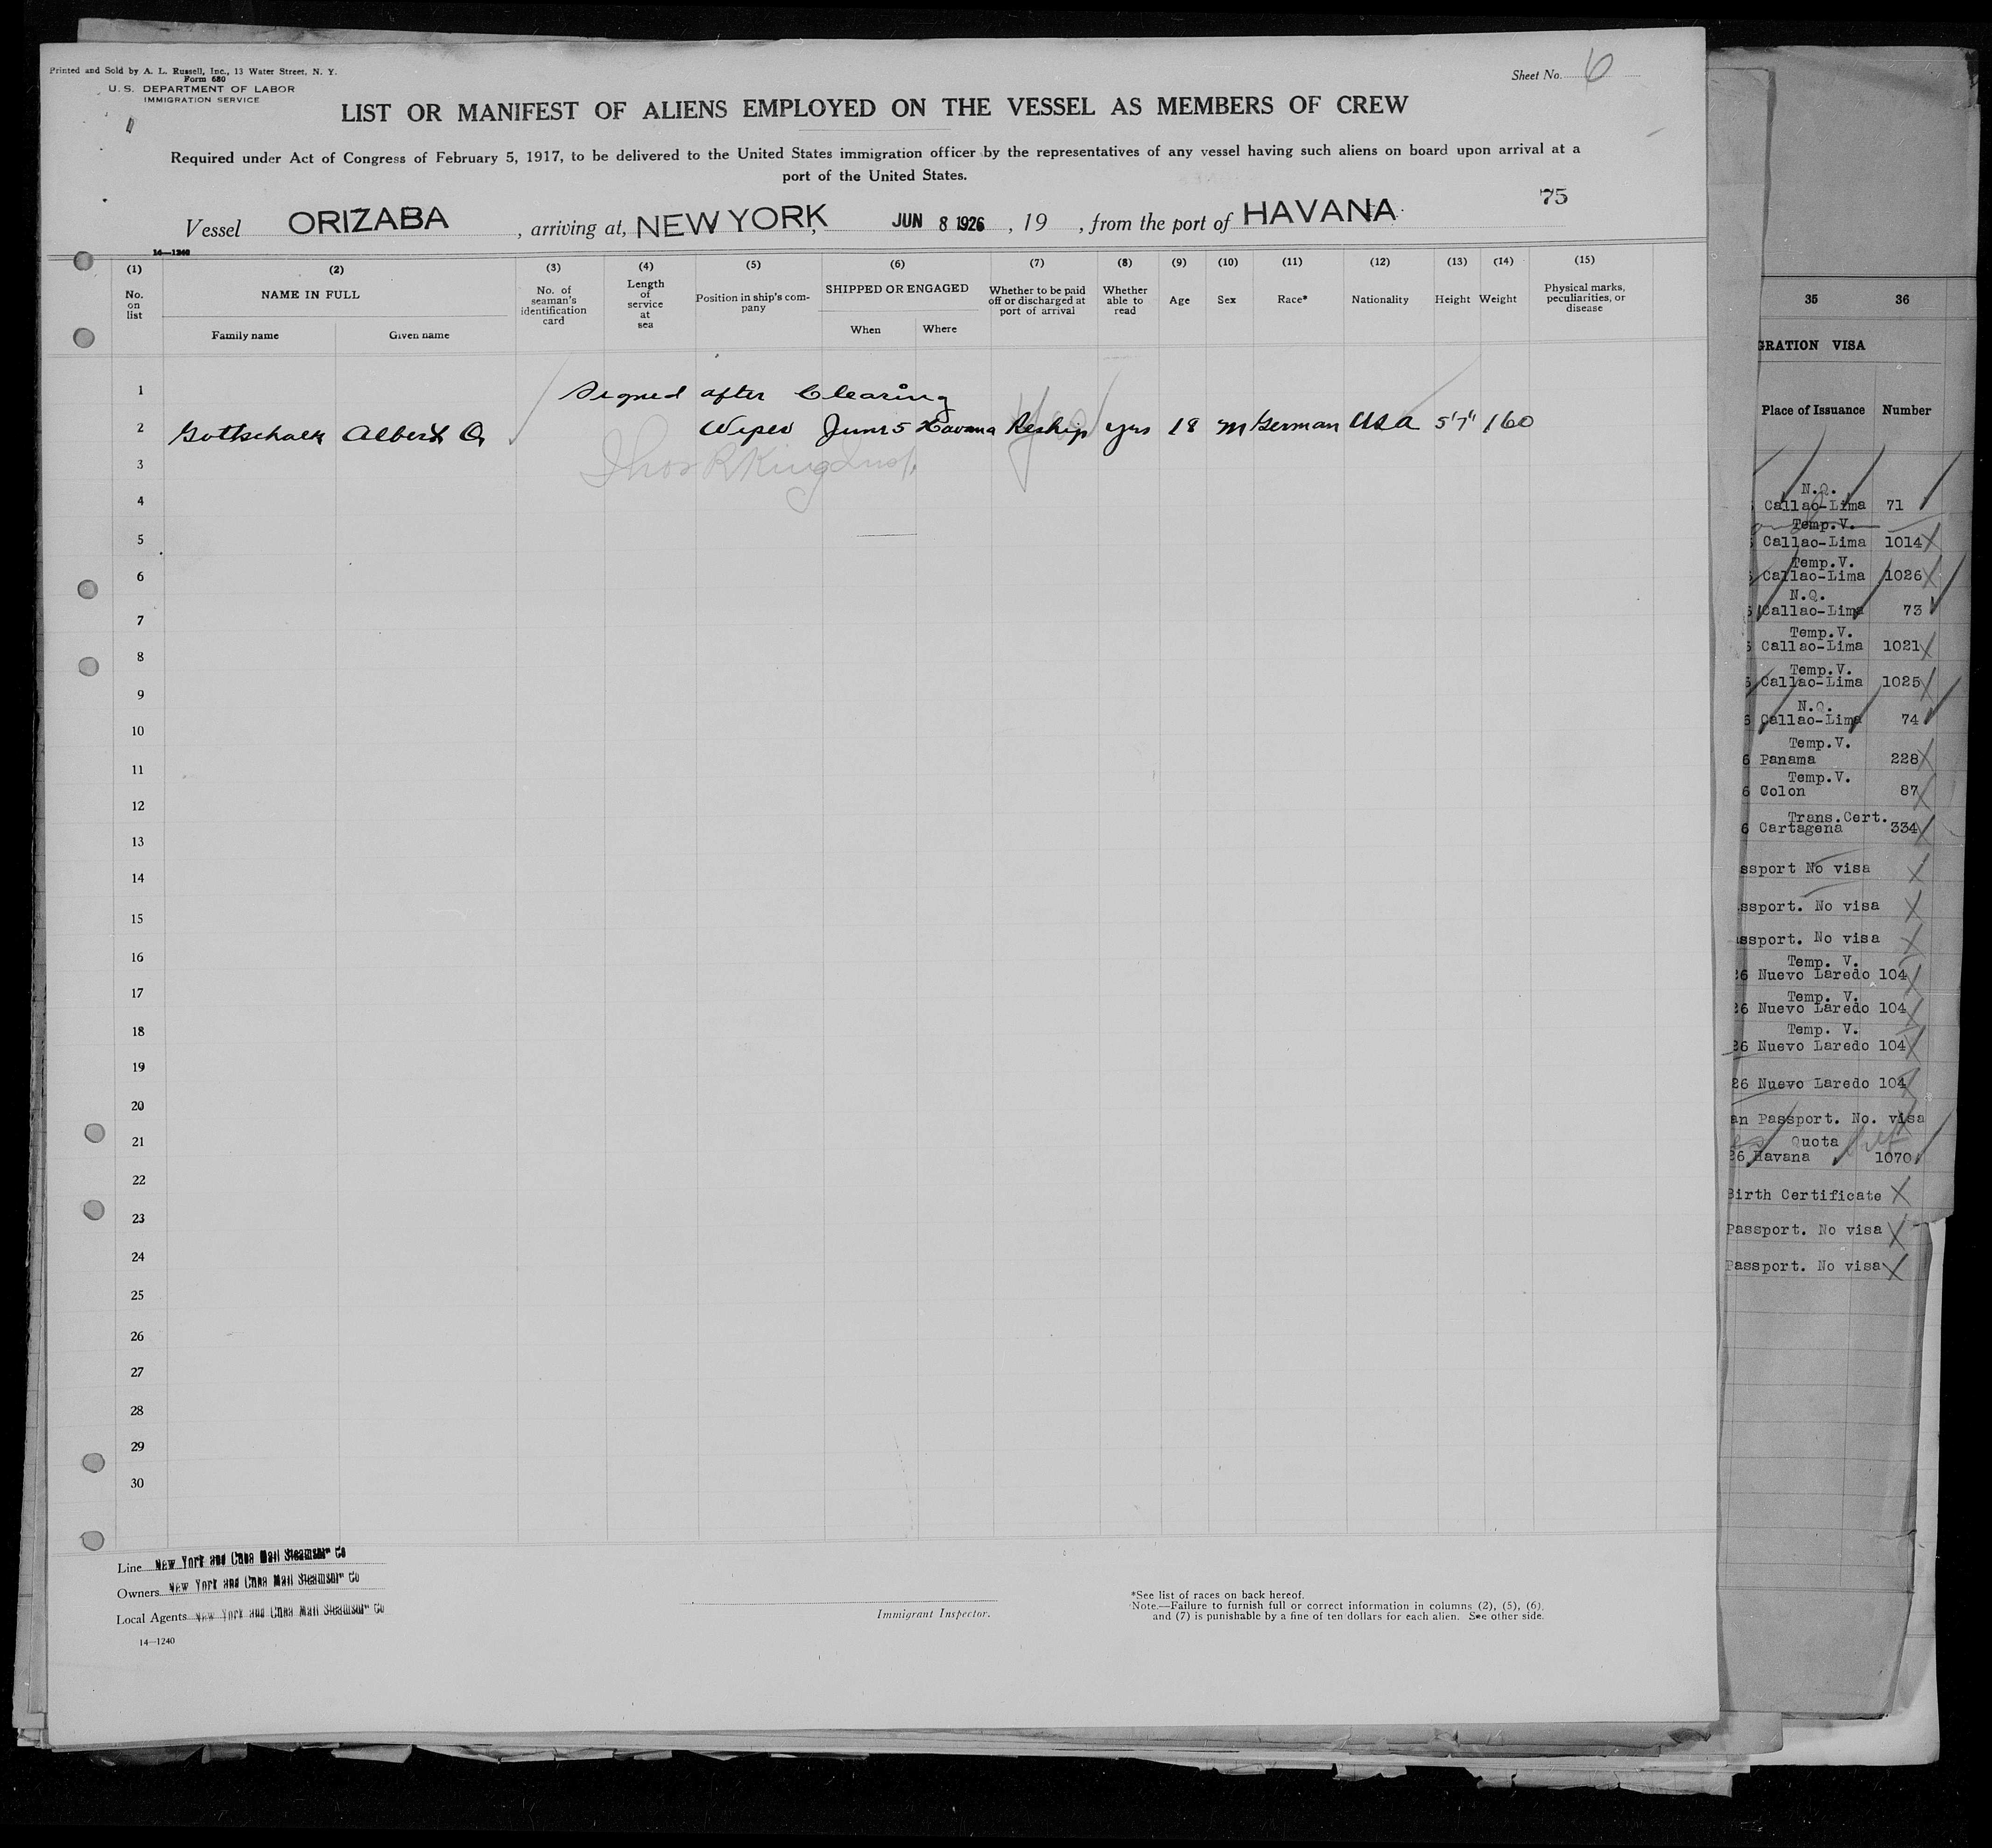 Printed and Sold by A. L. Russell, Inc., 13 Water Street, N. Y.
Form 680
U. S. DEPARTMENT OF LABOR
IMMIGRATION SERVICE
Sheet No. 6
LIST OR MANIFEST OF ALIENS EMPLOYED ON THE VESSEL AS MEMBERS OF CREW
Required under Act of Congress of February 5, 1917, to be delivered to the United States immigration officer by the representatives of any vessel having such aliens on board upon arrival at a
port of the United States.
75
Vessel ORIZABA , arriving at, NEW YORK, JUN 8 1926 , 19 , from the port of HAVANA
14—1240
(1) (2) (3) (4) (5) (6) (7) (8) (9) (10) (11) (12) (13) (14) (15)
No. on list
NAME IN FULL
Family name Given name
No. of seaman's identification card
Length of service at sea
Position in ship's company
SHIPPED OR ENGAGED
When Where
Whether to be paid off or discharged at port of arrival
Whether able to read
Age Sex Race* Nationality Height Weight
Physical marks, peculiarities, or disease
1 Signed after Clearing
2 Gottschalk Albert Wiper June 5 Havana Reship yes 18 M German USA 5'7" 160
3 Thos R King Insp.
4
5
6
7
8
9
10
11
12
13
14
15
16
17
18
19
20
21
22
23
24
25
26
27
28
29
30
Line New York and Cuba Mail Steamship Co
Owners New York and Cuba Mail Steamship Co
Local Agents New York and Cuba Mail Steamship Co
14—1240
Immigrant Inspector.
*See list of races on back hereof.
Note.—Failure to furnish full or correct information in columns (2), (5), (6),
and (7) is punishable by a fine of ten dollars for each alien. See other side.
35 36
GRATION VISA
Place of Issuance Number
N.Q.
Callao-Lima 71
Temp.V.
Callao-Lima 1014
Temp.V.
Callao-Lima 1026
N.Q.
Callao-Lima 73
Temp.V.
Callao-Lima 1021
Temp.V.
Callao-Lima 1025
N.Q.
6 Callao-Lima 74
Temp.V.
6 Panama 228
Temp.V.
6 Colon 87
Trans.Cert.
6 Cartagena 334
ssport No visa
ssport. No visa
ssport. No visa
Temp. V.
26 Nuevo Laredo 104
Temp. V.
26 Nuevo Laredo 104
Temp. V.
26 Nuevo Laredo 104
26 Nuevo Laredo 104
an Passport. No. visa
Quota
26 Havana 1070
Birth Certificate
Passport. No visa
Passport. No visa